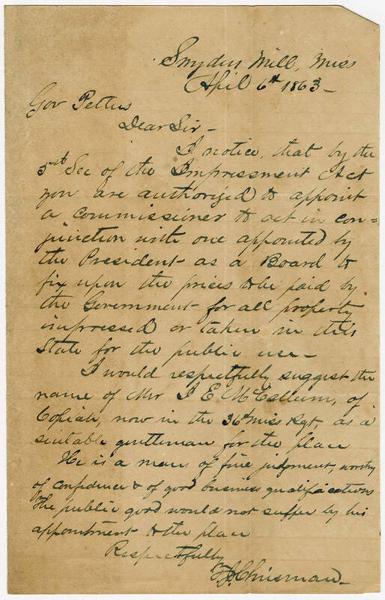 Snyders Mill, Miss
April 6th 1863 -
Gov Pettus
Dear Sir -
I notice, that by the
5th Sec of the Impressment Act
you are authorized to appoint
a commissioner to act in con=
junction with one appointed by
the President as a Board to
fix upon the prices to be paid by
the Government for all property
impressed or taken in this
State for the public use -
I would respectfully suggest the
name of Mr J E McCallum, of
Copiah, now in the 36th Miss Rgt, as a
suitable gentleman for the place
He is a man of fine judgment, worthy
of confidence & of good business qualifications
The public good would not suffer by his
appointment to the place
Respectfully
Chrisman -